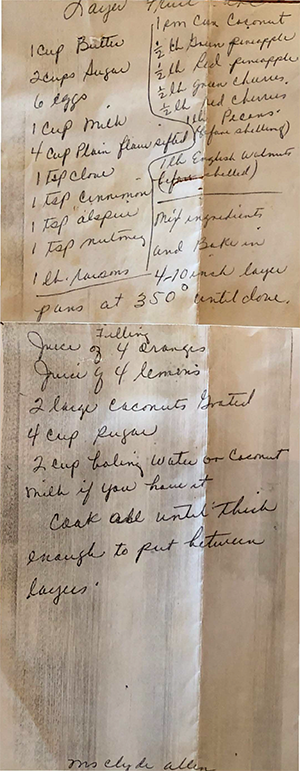 Layer Fruit
1 Cup Butter
2 Cups Sugar
6 eggs
1 Cup Milk
4 Cup Plain flour sifted
1 tsp clove
1 tsp Cinnamon
1 tsp alspice
1 tsp nutmeg
1 lb. raisons
1 sm Can Coconut
1/2 lb Green pineapple
1/2 lb Red pineapple
1/2 lb Green Cherries
1/2 lb Red Cherries
1 lb Pecans
(before shelling)
1 lb English Walnuts
(before shelled)
Mix ingredients
and Bake in
4-10 inch layer
pans at 350° until done.
Filling
Juice of 4 oranges
Juice of 4 lemons
2 large Coconuts Grated
4 Cup Sugar
2 Cup boling Water or Coconut
Milk if you have it
Cook all until thick
enough to put between
layers.
Ms Clyde Allen